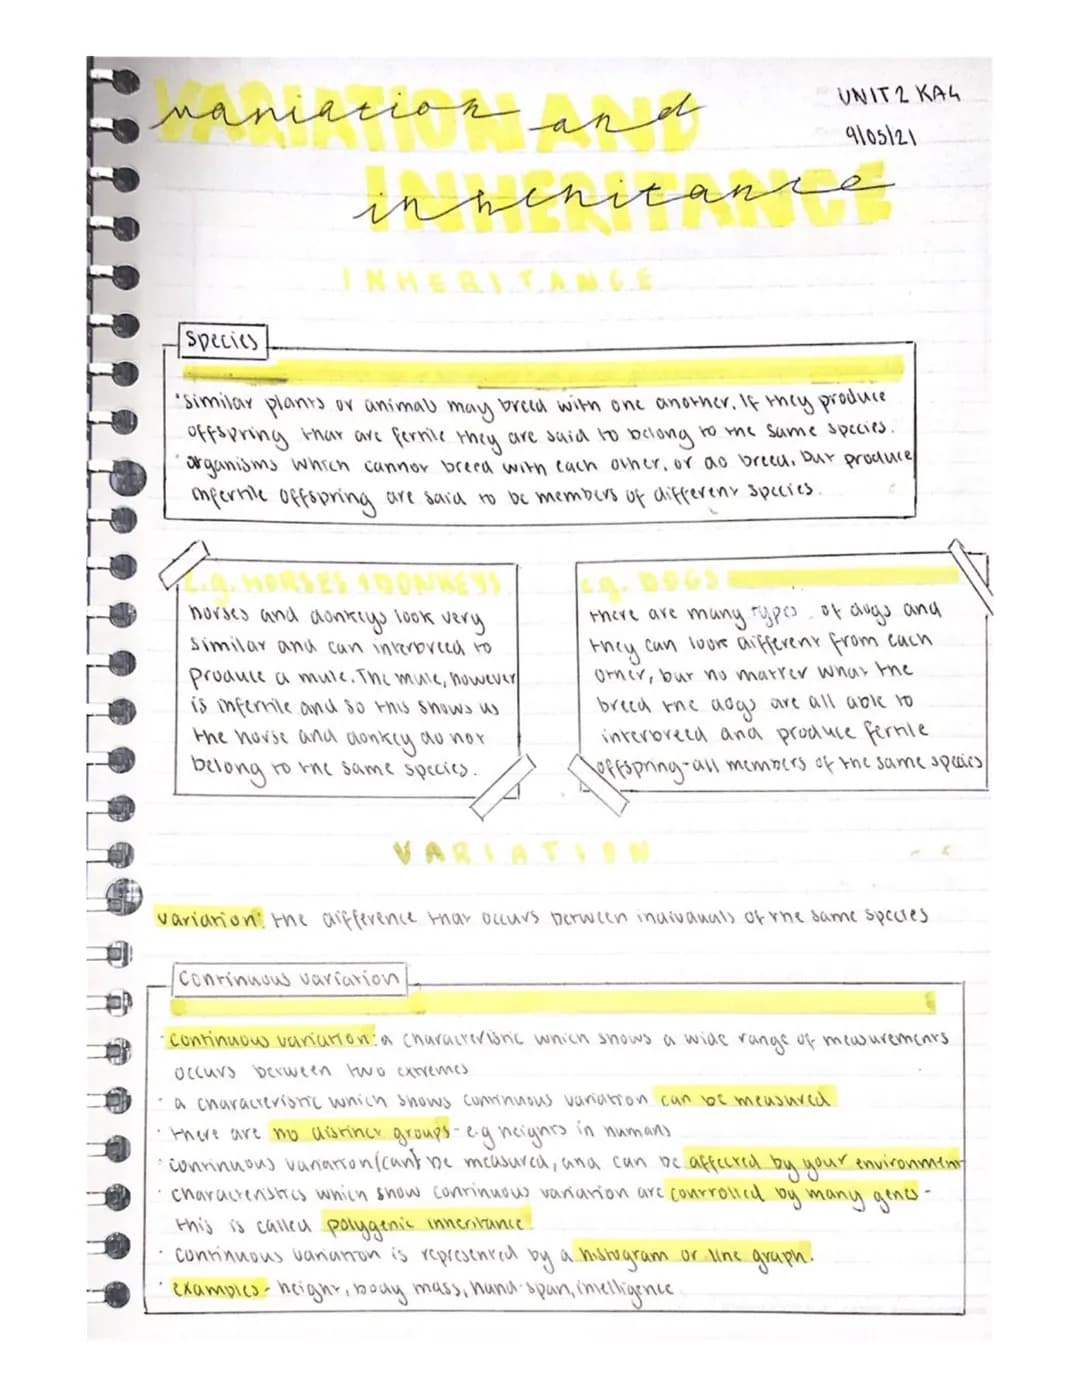 UNIT 2 KA4
9/05/21
VARIATION AND
variation and
INHERITANCE
inheritance
INHERITANCE
Species
• Similar plants or animals may breed with one another. If they produce
offspring that are fertile they are said to belong to the same species.
• organisms which cannot breed with each other, or do breed, but produce
infertile offspring are said to be members of different species.
e.g. HORSES & DONKEYS
horses and donkeys look very
similar and can interbreed to
produce a mule. The mule, however
is infertile and so this shows us
the horse and donkey do not
belong to the same species.
e.g. DOGS
there are many types of dogs and
they can look different from each
other, but no matter what the
breed the dogs are all able to
interbreed and produce fertile
offspring-all members of the same species
VARIATION
variation: the difference that occurs between indivduals of the same species
Continuous variation
• continuous variation: a characteristic which shows a wide range of measurements
occurs between two extremes
• a characteristic which shows continuous variation can be measured
• there are no distinct groups - e.g heights in humans
• continuous variation (can't be measured, and can be affected by your environment
• characteristics which show continuous variation are controlled by many genes -
this is called polygenic inheritance.
• continuous variation is represented by a histogram or line graph.
• examples - height, body mass, hand-span, intelligence